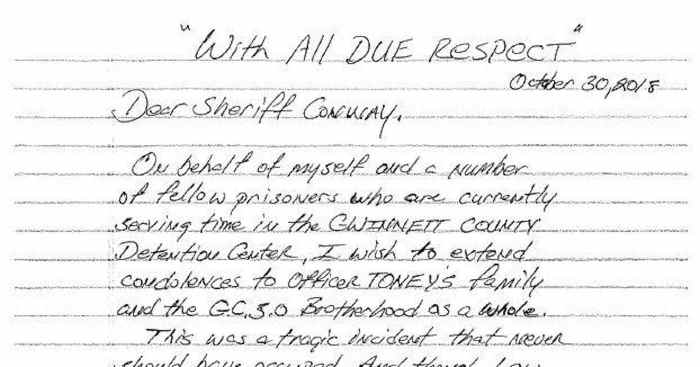 "With All DUE Respect"
October 30, 2018
Dear Sheriff Conway.
On behalf of myself and a number
of fellow prisoners who are currently
serving time in the GWINNETT COUNTY
Detention Center, I wish to extend
condolences to Officer TONEY'S family
and the G.C.S.O Brotherhood as a whole.
This was a tragic incident that never
should have occured. And though I am